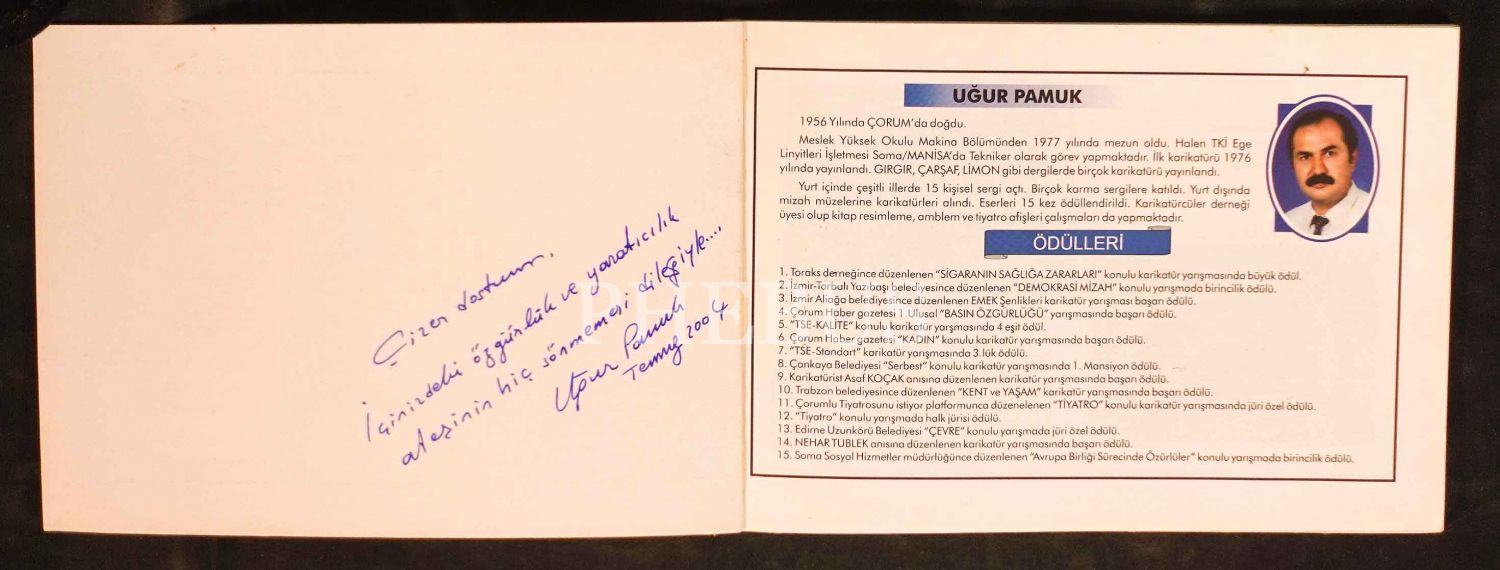 Çizer dostum,
İçinizdeki özgünlük ve yaratıcılık
ateşinin hiç sönmemesi dileğiyle...
Uğur Pamuk
Temmuz 2004
UĞUR PAMUK
1956 Yılında ÇORUM'da doğdu.
Meslek Yüksek Okulu Makina Bölümünden 1977 yılında mezun oldu. Halen TKİ Ege
Linyitleri İşletmesi Soma/MANİSA'da Tekniker olarak görev yapmaktadır. İlk karikatürü 1976
yılında yayınlandı. GIRGIR, ÇARŞAF, LİMON gibi dergilerde birçok karikatürü yayınlandı.
Yurt içinde çeşitli illerde 15 kişisel sergi açtı. Birçok karma sergilere katıldı. Yurt dışında
mizah müzelerine karikatürleri alındı. Eserleri 15 kez ödüllendirildi. Karikatürcüler derneği
üyesi olup kitap resimleme, amblem ve tiyatro afişleri çalışmaları da yapmaktadır.
ÖDÜLLERİ
1. Toraks derneğince düzenlenen "SİGARANIN SAĞLIĞA ZARARLARI" konulu karikatür yarışmasında büyük ödül.
2. İzmir-Torbalı Yazıbaşı belediyesince düzenlenen "DEMOKRASİ MİZAH" konulu yarışmada birincilik ödülü.
3. İzmir Aliağa belediyesince düzenlenen EMEK Şenlikleri karikatür yarışması başarı ödülü.
4. Çorum Haber gazetesi 1.Ulusal "BASIN ÖZGÜRLÜĞÜ" yarışmasında başarı ödülü.
5. "TSE-KALİTE" konulu karikatür yarşmasında 4 eşit ödül.
6. Çorum Haber gazetesi "KADIN" konulu karikatür yarışmasında başarı ödülü.
7. "TSE-Standart" karikatür yarışmasında 3.lük ödülü.
8. Çankaya Belediyesi "Serbest" konulu karikatür yarışmasında 1. Mansiyon ödülü.
9. Karikatürist Asaf KOÇAK anısına düzenlenen karikatür yarışmasında başarı ödülü.
10. Trabzon belediyesince düzenlenen "KENT ve YAŞAM" karikatür yarışmasında başarı ödülü.
11. Çorumlu Tiyatrosunu istiyor platformunca düzenelenen "TİYATRO" konulu karikatür yarışmasında jüri özel ödülü.
12. "Tiyatro" konulu yarışmada halk jürisi ödülü.
13. Edirne Uzunkörü Belediyesi "ÇEVRE" konulu yarışmada jüri özel ödülü.
14. NEHAR TUBLEK anısına düzenlenen karikatür yarışmasında başarı ödülü.
15. Soma Sosyal Hizmetler müdürlüğünce düzenlenen "Avrupa Birliği Sürecinde Özürlüler" konulu yarışmada birincilik ödülü.